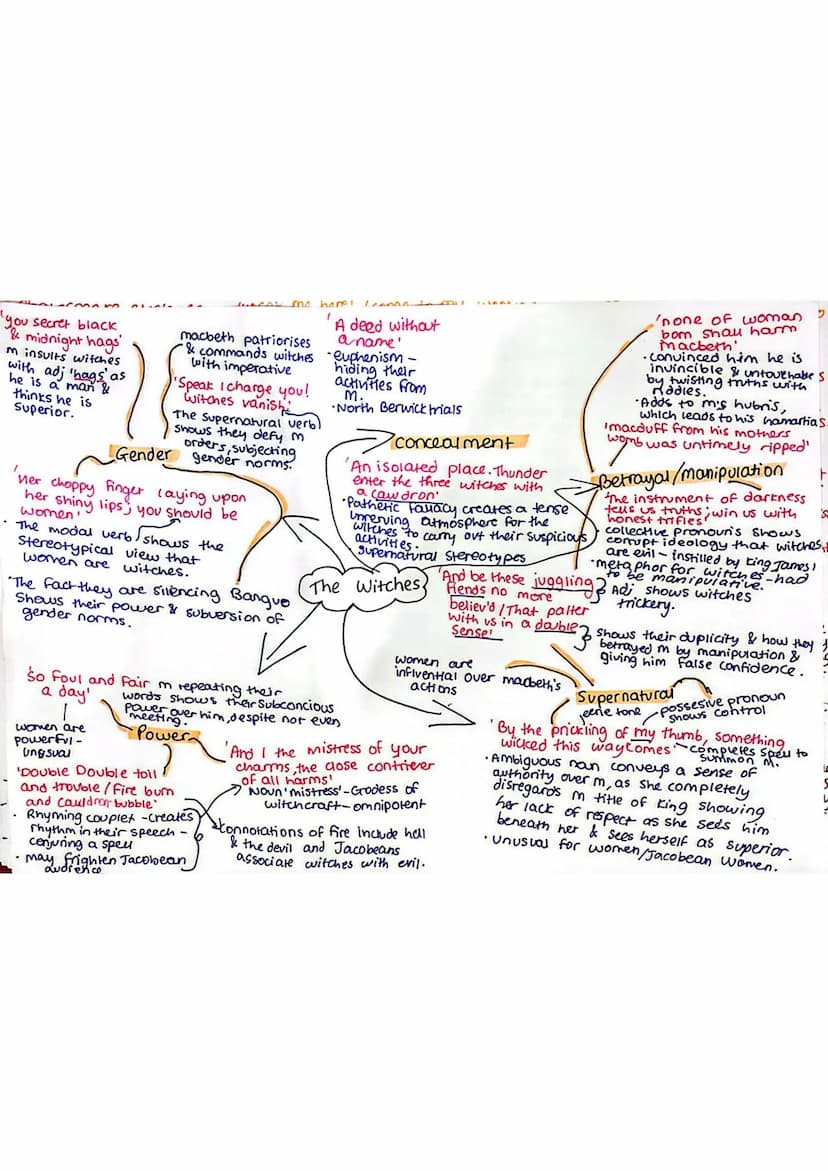 'you secret black
& midnight hags'
m insults witches
with adj 'hags' as
he is a man &
thinks he is
Superior.
macbeth patriorises
& commands witches
with imperative
'Speak I charge you!
witches vanish.'
The supernatural verb
shows they defy m
orders, subjecting
gender norms.
Gender
'Her choppy finger laying upon
her shiny lips, you should be
women'
• The modal verb shows the
stereotypical view that
women are witches.
•The fact they are silencing Banquo
shows their power & subversion of
gender norms.
'A deed without
a name'
•euphenism –
hiding their
activities from
M.
•North Berwick trials
concealment
'An isolated place. Thunder
enter the three witches with
a cauldron'
• Pathetic fallacy creates a tense
unnerving atmosphere for the
witches to carry out their suspicious
activities.
• supernatural stereotypes
'none of woman
born shall harm
macbeth'
• Convinced him he is
invincible & untouchable
by twisting truths with
Riddles.
•Adds to m's hubris,
which leads to his hamartias
'macduff from his mothers
womb was untimely ripped'
Betrayal/manipulation
'The instrument of darkness
tells us truths; win us with
honest trifles'
• collective pronouns shows
corrupt ideology that witches
are evil – instilled by King James 1
•metaphor for witches – had
to be manipulative.
'And be these juggling
fiends no more
believ'd / That palter
with us in a double
sense'
Adj shows witches
trickery.
shows their duplicity & how they
betrayed m by manipulation &
giving him false confidence.
The Witches
women are
influential over macbeth's
actions
Supernatural
eerie tone
possesive pronoun
shows control
'By the prickling of my thumb, something
wicked this way comes'
completes spell to
summon M.
•Ambiguous noun conveys a sense of
authority over m, as she completely
disregards m title of King showing
her lack of respect as she sees him
beneath her & sees herself as superior.
• Unusual for women/Jacobean women.
'So foul and fair
a day'
m repeating their
words shows their subconcious
power over him, despite not even
meeting.
women are
powerful –
unusual
Power
'Double Double toil
and trouble / fire burn
and cauldron bubble'
• Rhyming couplet – creates
rhythm in their speech –
conjuring a spell
• may frighten Jacobean
audience
'And I the mistress of your
charms, the close contriever
of all harms'
Noun 'mistress' – Godess of
witchcraft – omnipotent
Connotations of fire include hell
& the devil and Jacobeans
associate witches with evil.